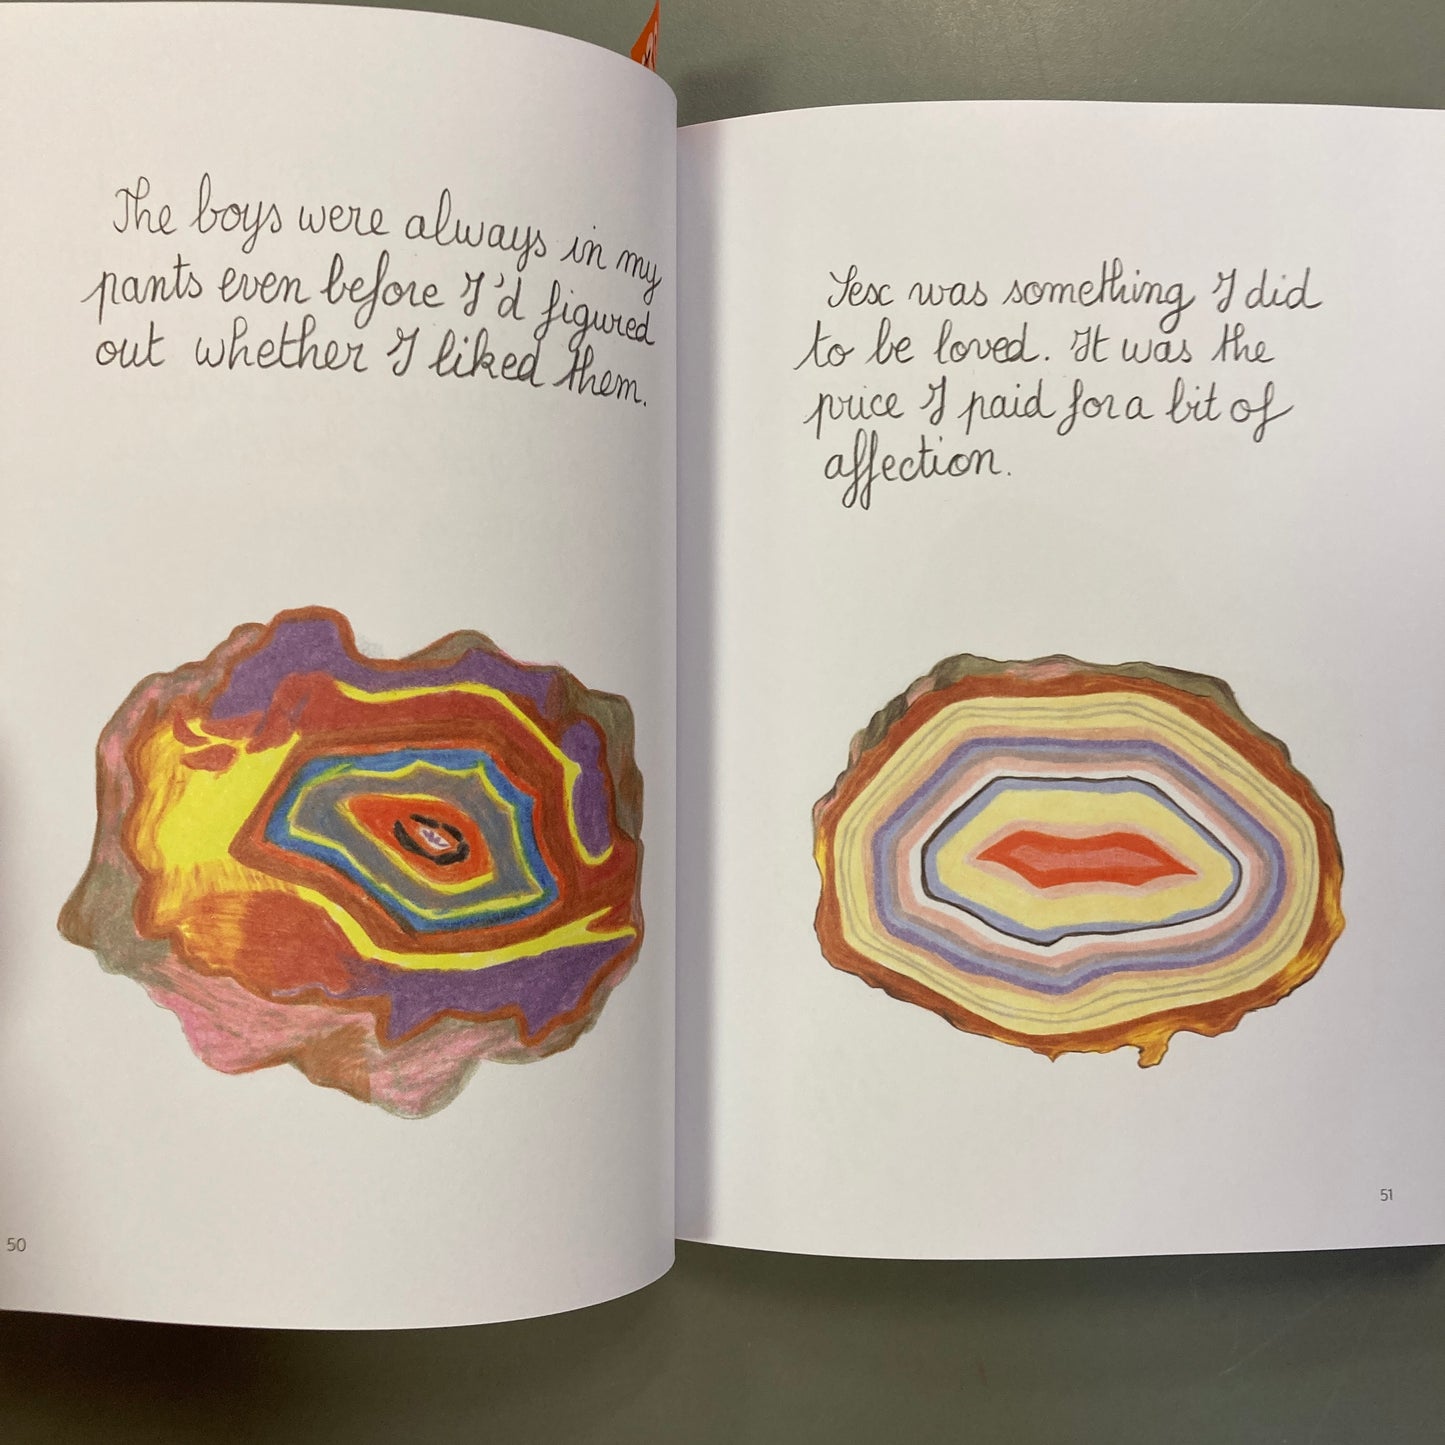 The boys were always in my
pants even before I'd figured
out whether I liked them.
50
Sex was something I did
to be loved. It was the
price I paid for a bit of
affection.
51